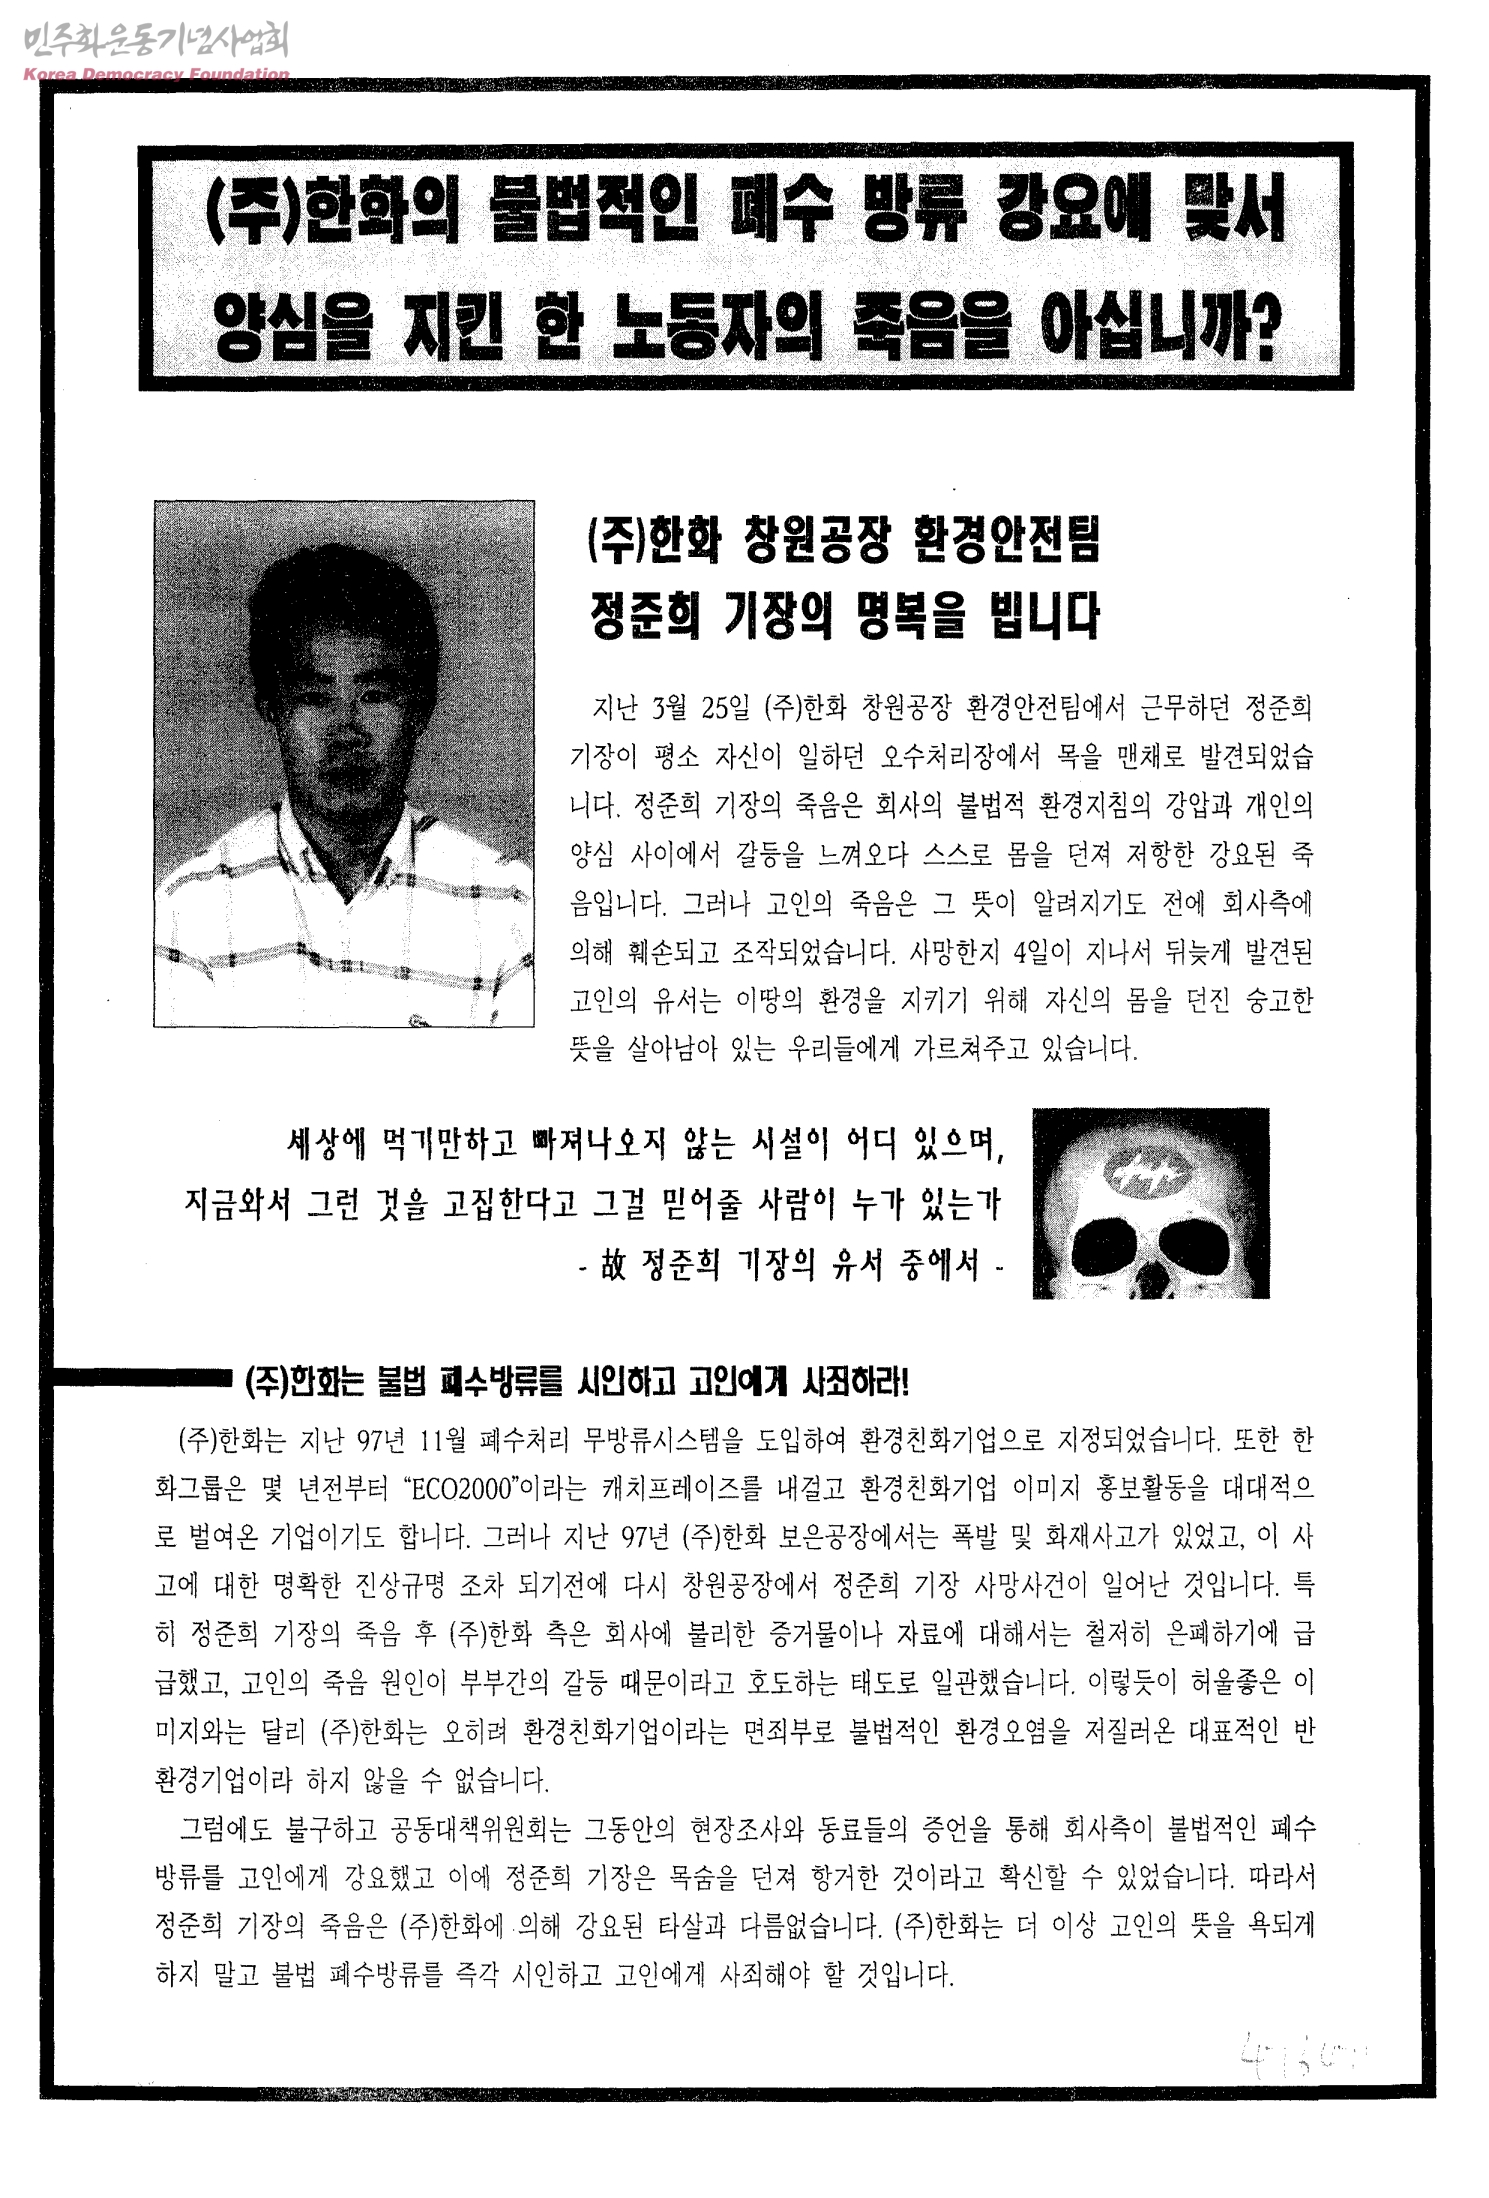 민주화운동기념사업회
Korea Democracy Foundation
(주)한화의 불법적인 폐수 방류 강요에 맞서
양심을 지킨 한 노동자의 죽음을 아십니까?
(주)한화 창원공장 환경안전팀
정준희 기장의 명복을 빕니다
지난 3월 25일 (주)한화 창원공장 환경안전팀에서 근무하던 정준희
기장이 평소 자신이 일하던 오수처리장에서 목을 맨채로 발견되었습
니다. 정준희 기장의 죽음은 회사의 불법적 환경지침의 강압과 개인의
양심 사이에서 갈등을 느껴오다 스스로 몸을 던져 저항한 강요된 죽
음입니다. 그러나 고인의 죽음은 그 뜻이 알려지기도 전에 회사측에
의해 훼손되고 조작되었습니다. 사망한지 4일이 지나서 뒤늦게 발견된
고인의 유서는 이땅의 환경을 지키기 위해 자신의 몸을 던진 숭고한
뜻을 살아남아 있는 우리들에게 가르쳐주고 있습니다.
세상에 먹기만하고 빠져나오지 않는 시설이 어디 있으며,
지금와서 그런 것을 고집한다고 그걸 믿어줄 사람이 누가 있는가
- 故 정준희 기장의 유서 중에서 -
(주)한화는 불법 폐수방류를 시인하고 고인에게 사죄하라!
(주)한화는 지난 97년 11월 폐수처리 무방류시스템을 도입하여 환경친화기업으로 지정되었습니다. 또한 한
화그룹은 몇 년전부터 “ECO2000”이라는 캐치프레이즈를 내걸고 환경친화기업 이미지 홍보활동을 대대적으
로 벌여온 기업이기도 합니다. 그러나 지난 97년 (주)한화 보은공장에서는 폭발 및 화재사고가 있었고, 이 사
고에 대한 명확한 진상규명 조차 되기전에 다시 창원공장에서 정준희 기장 사망사건이 일어난 것입니다. 특
히 정준희 기장의 죽음 후 (주)한화 측은 회사에 불리한 증거물이나 자료에 대해서는 철저히 은폐하기에 급
급했고, 고인의 죽음 원인이 부부간의 갈등 때문이라고 호도하는 태도로 일관했습니다. 이렇듯이 허울좋은 이
미지와는 달리 (주)한화는 오히려 환경친화기업이라는 면죄부로 불법적인 환경오염을 저질러온 대표적인 반
환경기업이라 하지 않을 수 없습니다.
그럼에도 불구하고 공동대책위원회는 그동안의 현장조사와 동료들의 증언을 통해 회사측이 불법적인 폐수
방류를 고인에게 강요했고 이에 정준희 기장은 목숨을 던져 항거한 것이라고 확신할 수 있었습니다. 따라서
정준희 기장의 죽음은 (주)한화에 의해 강요된 타살과 다름없습니다. (주)한화는 더 이상 고인의 뜻을 욕되게
하지 말고 불법 폐수방류를 즉각 시인하고 고인에게 사죄해야 할 것입니다.